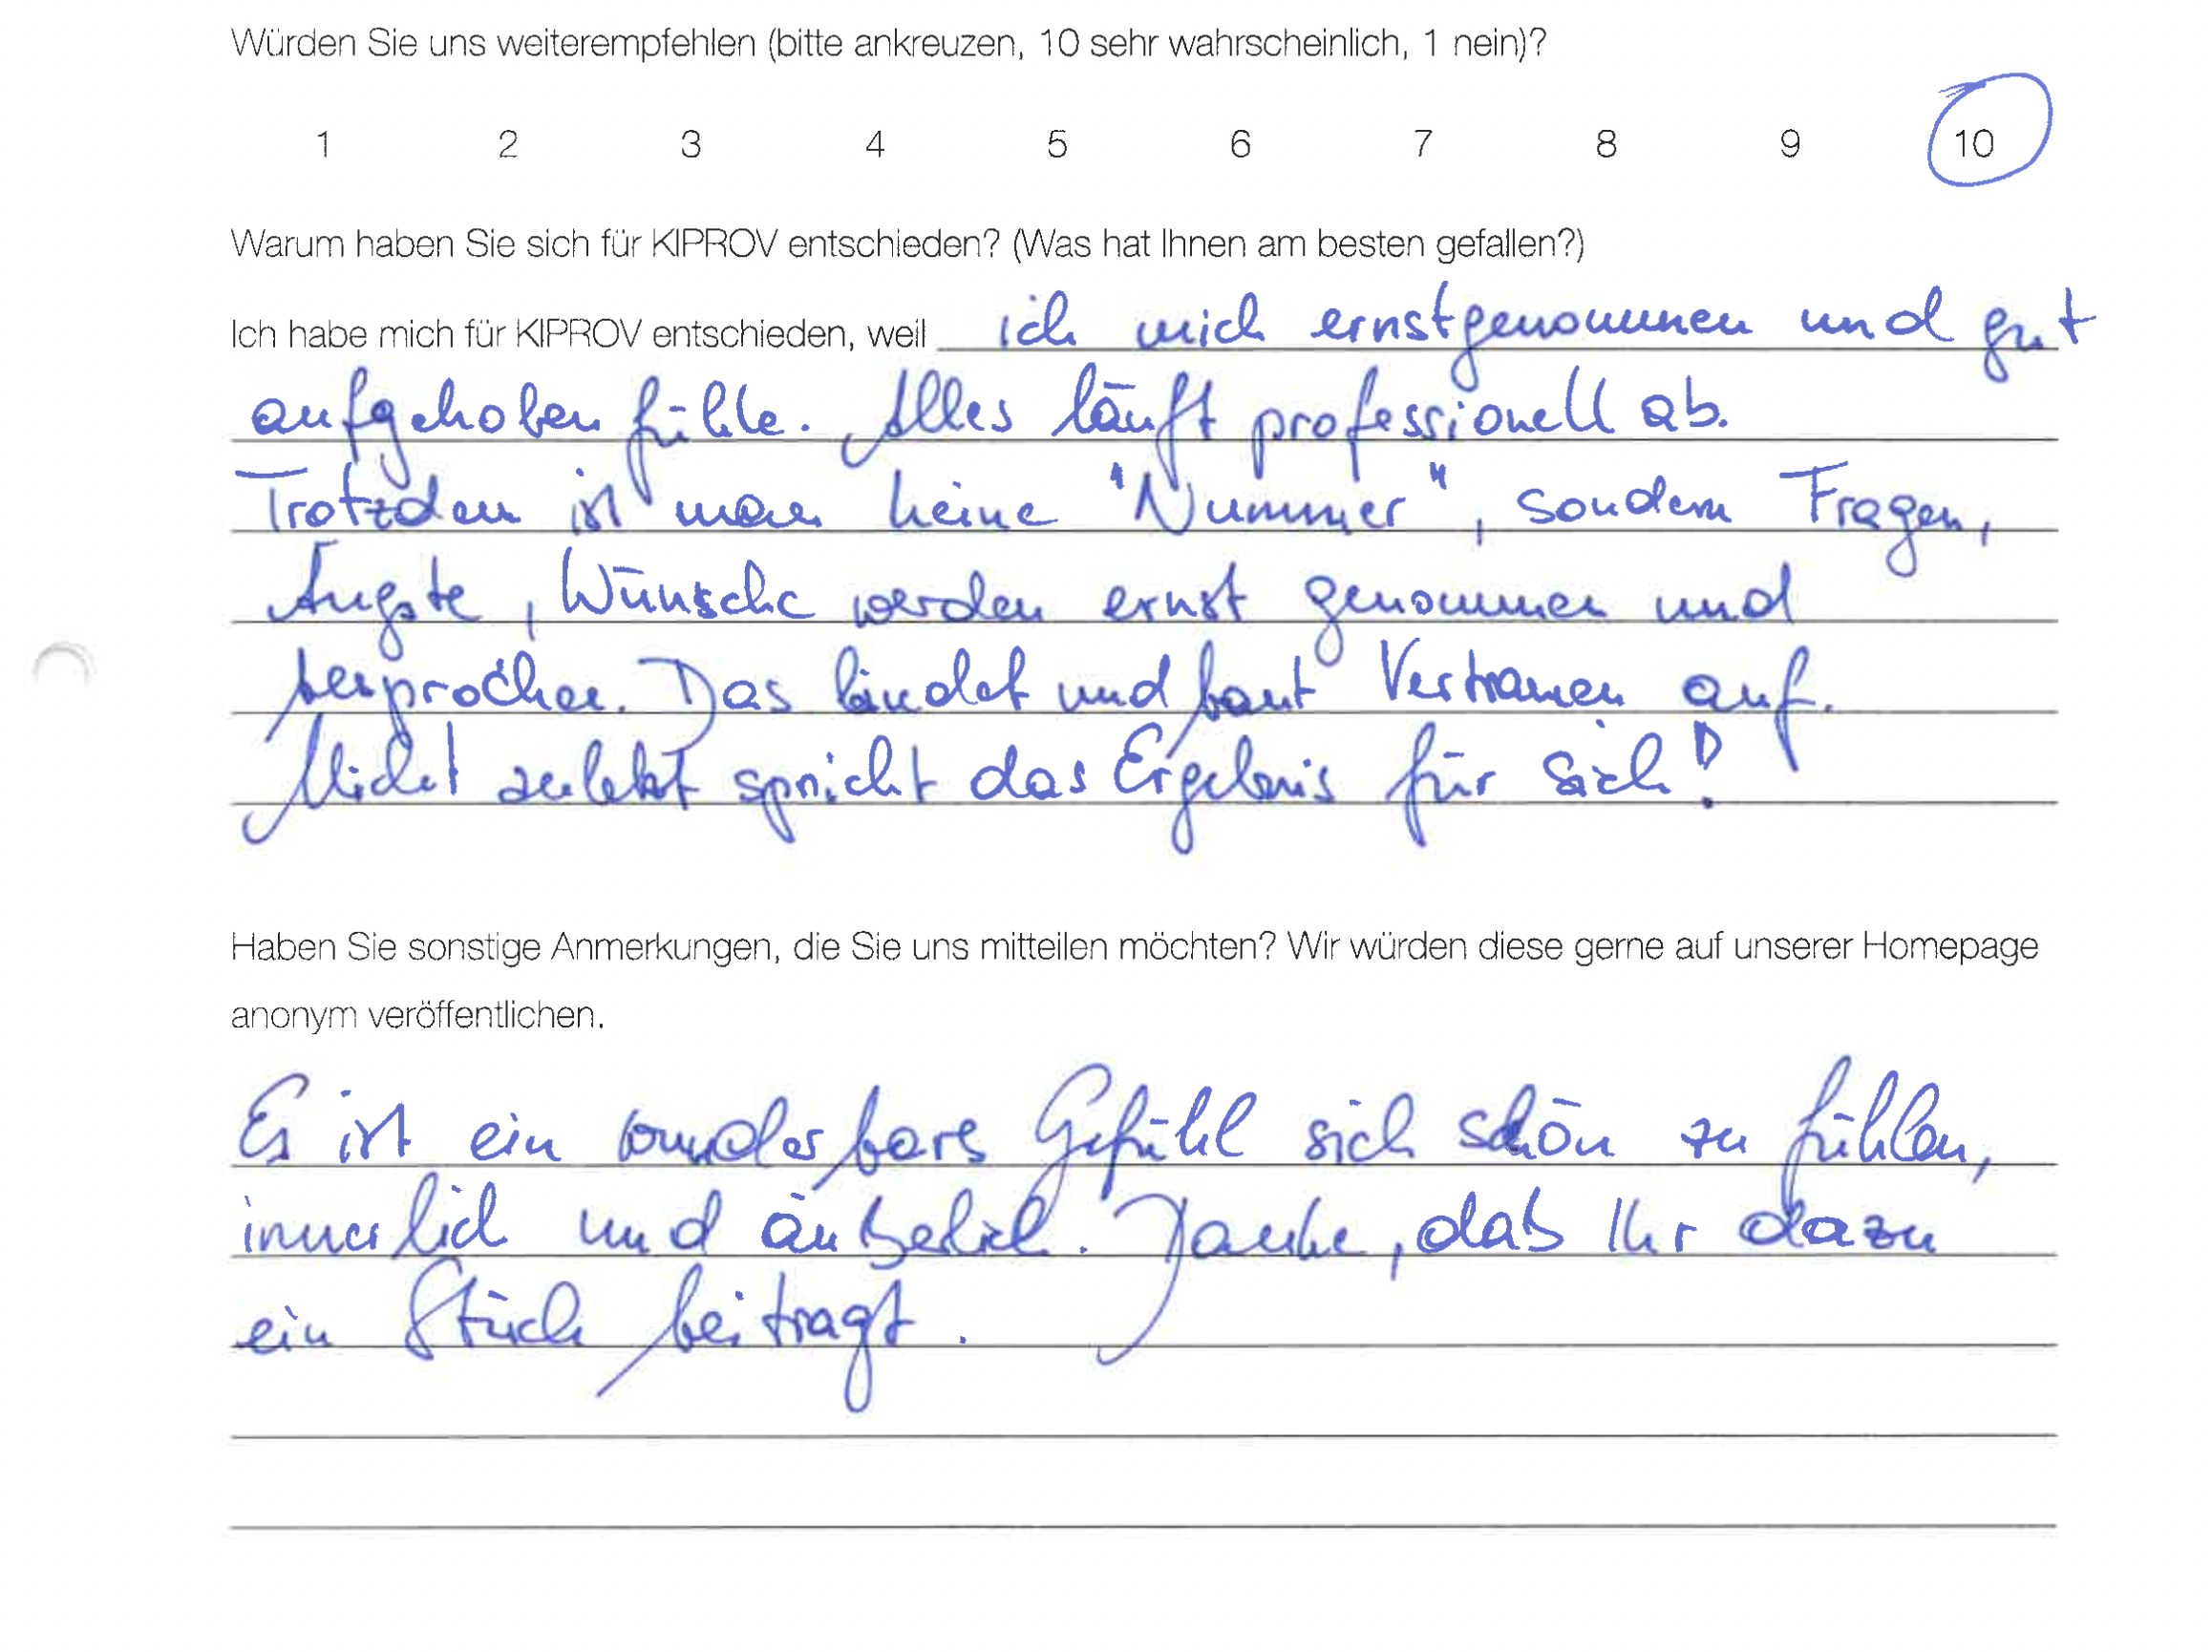 Würden Sie uns weiterempfehlen (bitte ankreuzen, 10 sehr wahrscheinlich, 1 nein)?
1 2 3 4 5 6 7 8 9 10
Warum haben Sie sich für KIPROV entschieden? (Was hat Ihnen am besten gefallen?)
Ich habe mich für KIPROV entschieden, weil ich mich ernstgenommen und gut
aufgehoben fühle. Alles läuft professionell ab.
Trotzdem ist man keine "Nummer", sondern Fragen,
Ängste, Wünsche werden ernst genommen und
besprochen. Das bindet und baut Vertrauen auf.
Nicht zuletzt spricht das Ergebnis für sich!
Haben Sie sonstige Anmerkungen, die Sie uns mitteilen möchten? Wir würden diese gerne auf unserer Homepage
anonym veröffentlichen.
Es ist ein wunderbares Gefühl sich schön zu fühlen,
innerlich und äußerlich. Danke, daß Ihr dazu
ein Stück beitragt.